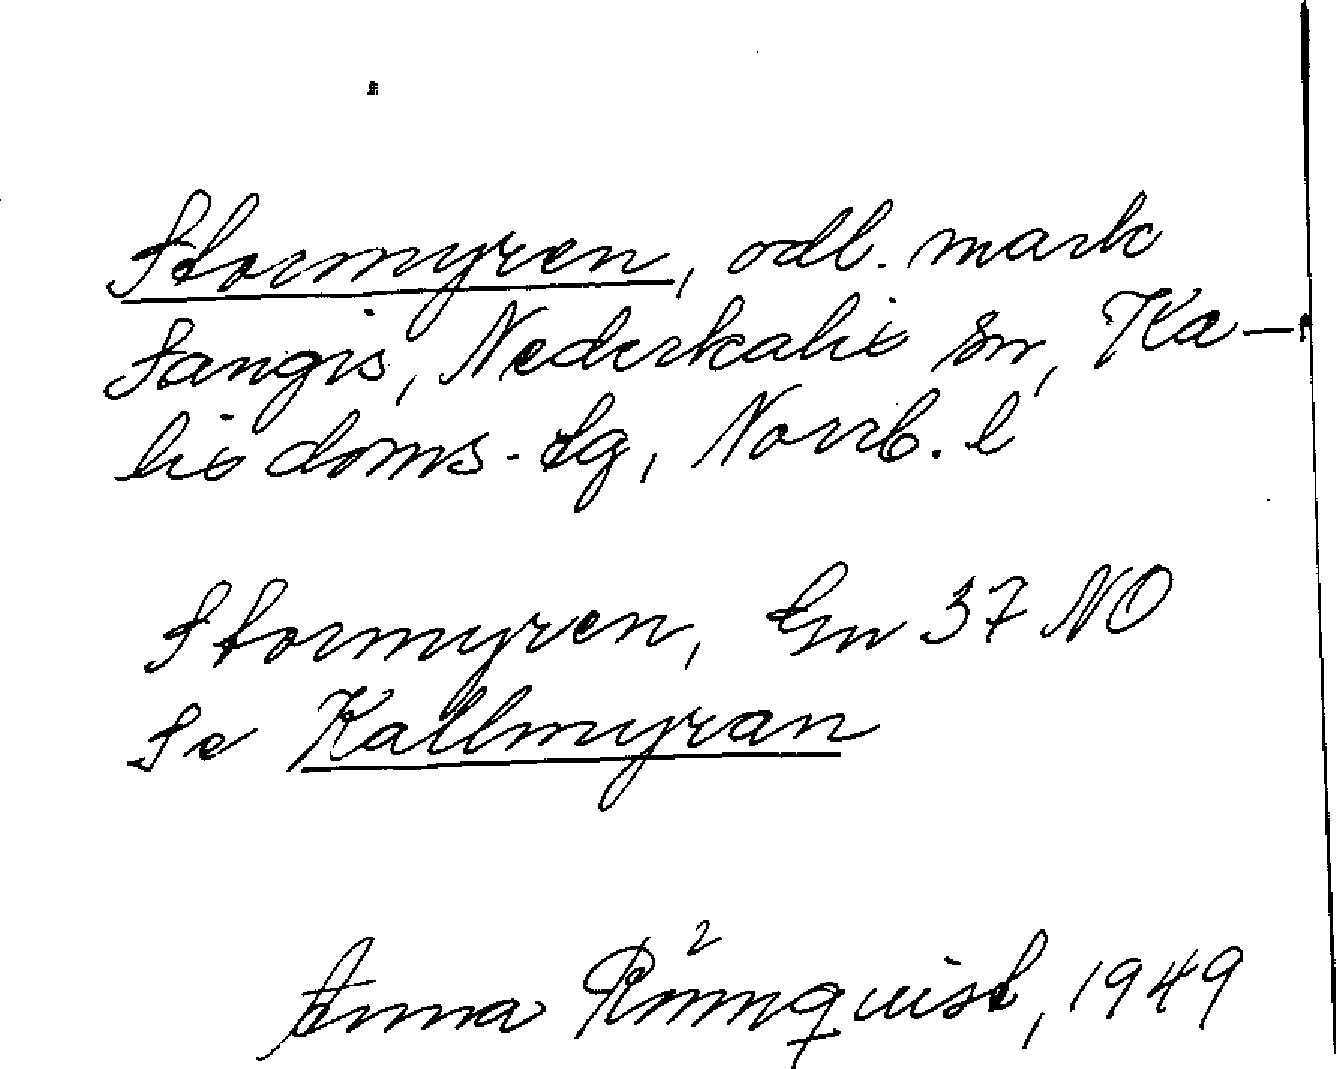 Stormyren, odl. mark
Sangis, Nederkalix sn, Ka-
lix doms. tg, Norrb. l
Stormyren, Gn 37 NO
Se Kallmyran
Anna Rönnquist, 1949